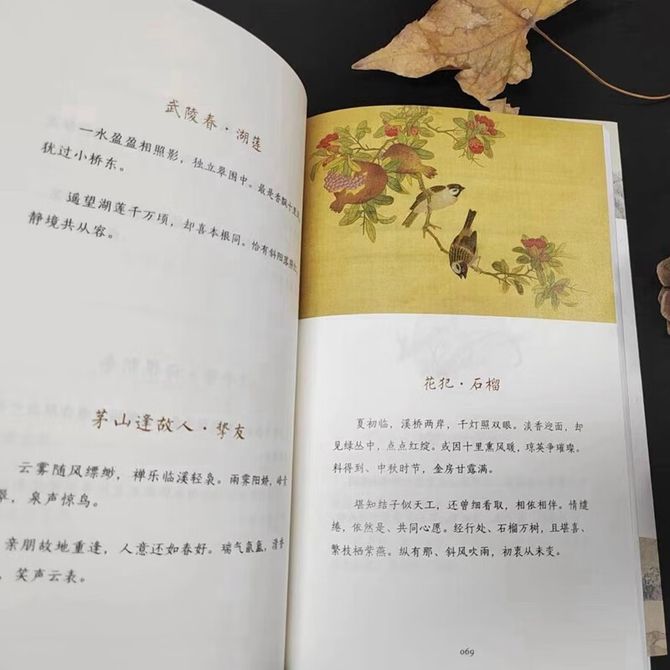 武陵春·湖莲
一水盈盈相照影，独立翠围中。最是香飘十里
犹过小桥东。
遥望湖莲千万顷，却喜本根同。恰有斜阳
静境共从容。
茅山逢故人·挚友
云雾随风缥缈，禅乐临溪轻袅。雨霁阳娇，
翠，泉声惊鸟。
亲朋故地重逢，人意还如春好。瑞气氤氲，清香
，笑声云表。
花犯·石榴
夏初临，溪桥两岸，千灯照双眼。淡香迎面，却
见绿丛中，点点红绽。或因十里熏风暖，琼英争璀璨。
料得到、中秋时节，金房甘露满。
堪知结子似天工，还曾细看取，相依相伴。情缱
绻，依然是、共同心愿。经行处、石榴万树，且堪喜、
繁枝栖紫燕。纵有那、斜风吹雨，初衷从未变。
069